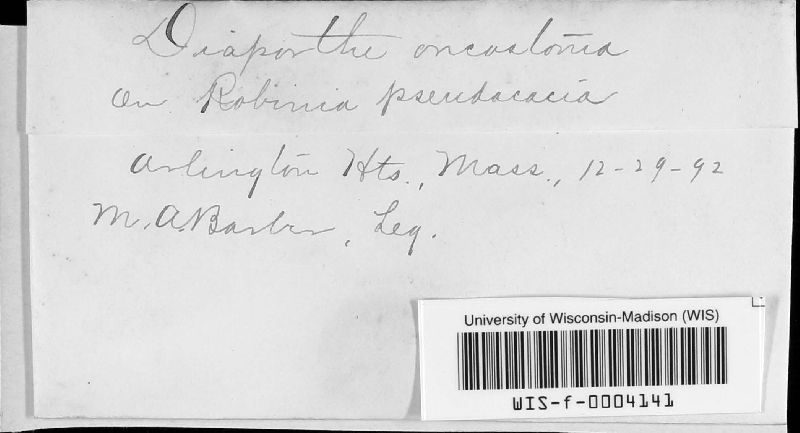 Diaporthe oncostoma
on Robinia pseudacacia
Arlington Hts., Mass., 12-29-92
M. A. Barber, Leg.
University of Wisconsin-Madison (WIS)
WIS-f-0004141